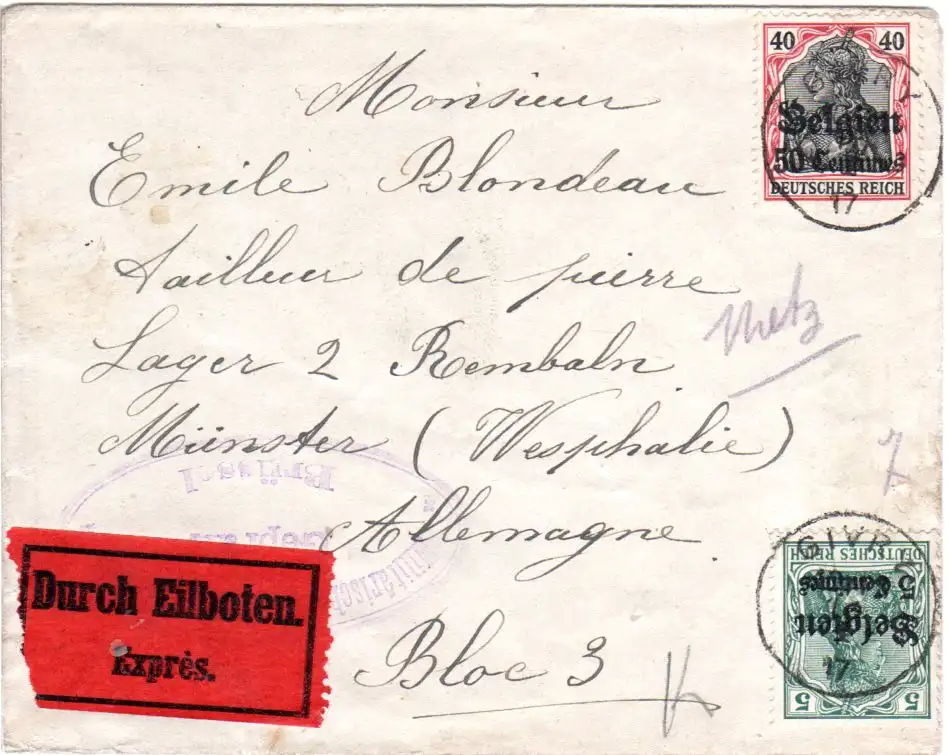 40 40
Belgien
50 Centimes
DEUTSCHES REICH
17
Monsieur
Emile Blondeau
Tailleur de pierre
Lager 2 Rembaln
Metz
Münster (Wesphalie)
Allemagne
Bloc 3
Brüssel
Geprüft
Durch Eilboten.
Exprès.
GIVRY
DEUTSCHES REICH
5 Centimes
Belgien
17
5 5